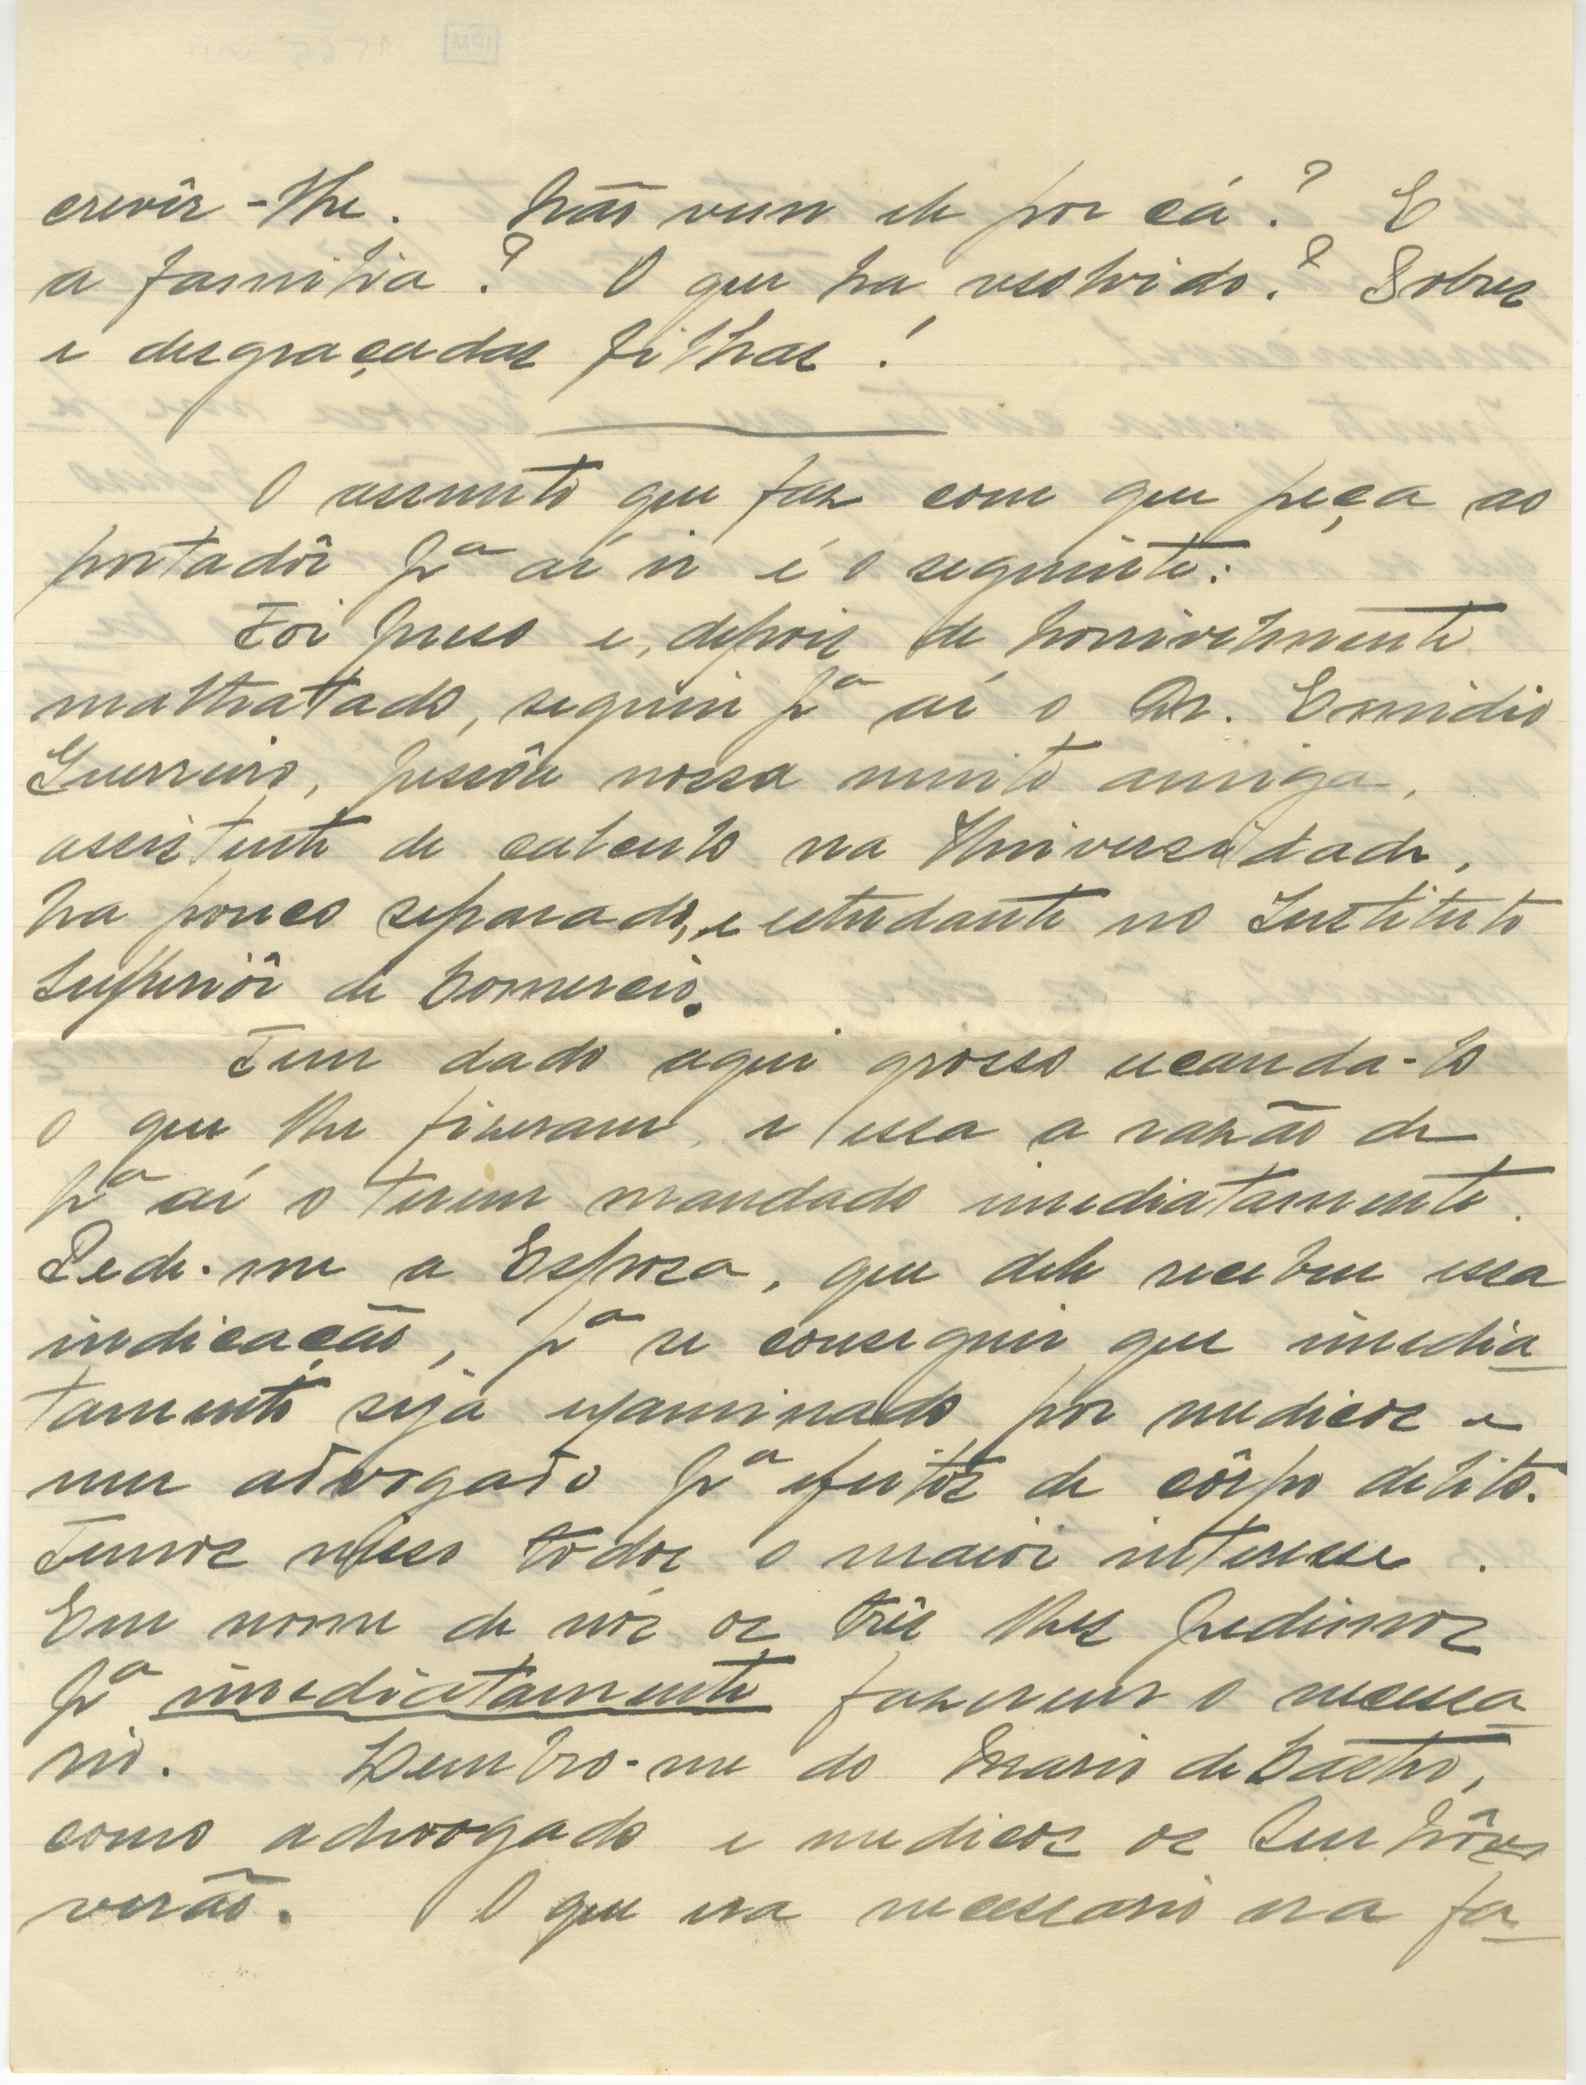 crevêr-lhe. Não vem ele por cá? E
a familia? O que ha resolvido? Pobres
e desgraçadas filhas!
O assunto que faz com que peça ao
portadôr pª aí ir é o seguinte:
Foi preso e, depois de horrivelmente
maltratado, seguiu pª aí o Dr. Emidio
Guerreiro, pessôa nossa muito amiga,
assistente de calculo na Universidade,
ha pouco separado, e estudante no Instituto
Superiôr de Comercio.
Tem dado aqui grosso escanda-lo
o que lhe fizeram, e essa a razão de
pª aí o terem mandado imediatamente.
Pede-me a Esposa, que dele recebeu essa
indicação, pª se conseguir que imedia
tamente seja examinado por medicos e
um advogado pª efeitos de côrpo delito.
Temos nisso todos o maior interesse.
Em nome de nós os três lhes pedimos
pª imediatamente fazerem o necessa
rio. Lembro-me do Mario de Castro,
como advogado e medicos os Senhôres
verão. O que era necessario era fa